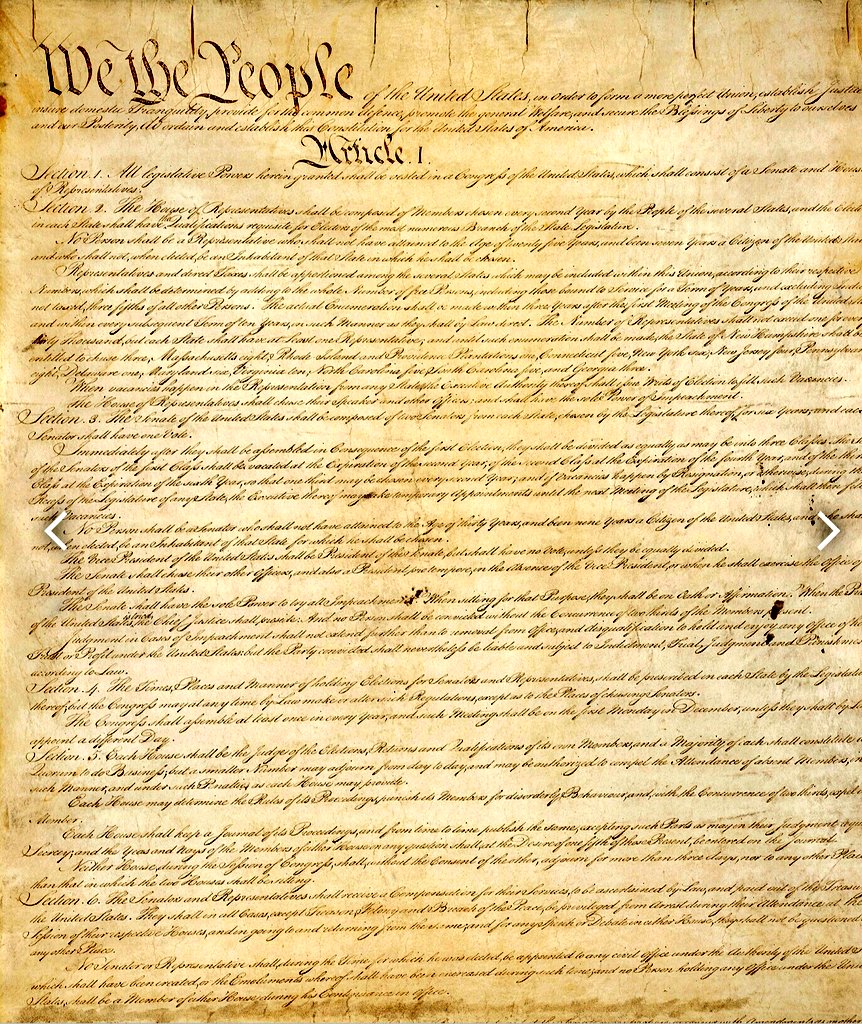 We the People of the United States, in Order to form a more perfect Union, establish Justice
insure domestic Tranquility, provide for the common defence, promote the general Welfare, and secure the Blessings of Liberty to ourselves
and our Posterity, do ordain and establish this Constitution for the United States of America.
Article. I.
Section. 1. All legislative Powers herein granted shall be vested in a Congress of the United States, which shall consist of a Senate and House
of Representatives.
Section. 2. The House of Representatives shall be composed of Members chosen every second Year by the People of the several States, and the
in each State shall have Qualifications requisite for Electors of the most numerous Branch of the State Legislature.
No Person shall be a Representative who shall not have attained to the Age of twenty five Years, and been seven Years a Citizen of the United
and who shall not, when elected, be an Inhabitant of that State in which he shall be chosen.
Representatives and direct Taxes shall be apportioned among the several States which may be included within this Union, according to their respective
Numbers, which shall be determined by adding to the whole Number of free Persons, including those bound to Service for a Term of Years, and excluding
not taxed, three fifths of all other Persons. The actual Enumeration shall be made within three Years after the first Meeting of the Congress of the United
and within every subsequent Term of ten Years, in such Manner as they shall by Law direct. The Number of Representatives shall not exceed one for
thirty Thousand, but each State shall have at Least one Representative; and until such enumeration shall be made, the State of New Hampshire shall be
entitled to chuse three, Massachusetts eight, Rhode Island and Providence Plantations one, Connecticut five, New York six, New Jersey four, Pennsylvania
eight, Delaware one, Maryland six, Virginia ten, North Carolina five, South Carolina five, and Georgia three.
When vacancies happen in the Representation from any State, the Executive Authority thereof shall issue Writs of Election to fill such Vacancies.
The House of Representatives shall chuse their Speaker and other Officers; and shall have the sole Power of Impeachment.
Section. 3. The Senate of the United States shall be composed of two Senators from each State, chosen by the Legislature thereof, for six Years; and each
Senator shall have one Vote.
Immediately after they shall be assembled in Consequence of the first Election, they shall be divided as equally as may be into three Classes. The
of the Senators of the first Class shall be vacated at the Expiration of the second Year, of the second Class at the Expiration of the fourth Year, and of the third
Class at the Expiration of the sixth Year, so that one third may be chosen every second Year; and if Vacancies happen by Resignation, or otherwise, during the
Recess of the Legislature of any State, the Executive thereof may make temporary Appointments until the next Meeting of the Legislature, which shall then fill
such Vacancies.
No Person shall be a Senator who shall not have attained to the Age of thirty Years, and been nine Years a Citizen of the United States, and who shall
not, when elected, be an Inhabitant of that State for which he shall be chosen.
The Vice President of the United States shall be President of the Senate, but shall have no Vote, unless they be equally divided.
The Senate shall chuse their other Officers, and also a President pro tempore, in the Absence of the Vice President, or when he shall exercise the Office of
President of the United States.
The Senate shall have the sole Power to try all Impeachments. When sitting for that Purpose, they shall be on Oath or Affirmation. When the
of the United States is tried, the Chief Justice shall preside: And no Person shall be convicted without the Concurrence of two thirds of the Members present.
Judgment in Cases of Impeachment shall not extend further than to removal from Office, and disqualification to hold and enjoy any Office of
Trust or Profit under the United States: but the Party convicted shall nevertheless be liable and subject to Indictment, Trial, Judgment and
according to Law.
Section. 4. The Times, Places and Manner of holding Elections for Senators and Representatives, shall be prescribed in each State by the Legislature
thereof; but the Congress may at any time by Law make or alter such Regulations, except as to the Places of chusing Senators.
The Congress shall assemble at least once in every Year, and such Meeting shall be on the first Monday in December, unless they shall by
appoint a different Day.
Section. 5. Each House shall be the Judge of the Elections, Returns and Qualifications of its own Members, and a Majority of each shall constitute
Quorum to do Business; but a smaller Number may adjourn from day to day, and may be authorized to compel the Attendance of absent Members, in
such Manner, and under such Penalties as each House may provide.
Each House may determine the Rules of its Proceedings, punish its Members for disorderly Behaviour, and, with the Concurrence of two thirds, expel
Member.
Each House shall keep a Journal of its Proceedings, and from time to time publish the same, excepting such Parts as may in their Judgment
Secrecy; and the Yeas and Nays of the Members of either House on any question shall, at the Desire of one fifth of those Present, be entered on the Journal.
Neither House, during the Session of Congress, shall, without the Consent of the other, adjourn for more than three days, nor to any other Place
than that in which the two Houses shall be sitting.
Section. 6. The Senators and Representatives shall receive a Compensation for their Services, to be ascertained by Law, and paid out of the
the United States. They shall in all Cases, except Treason, Felony and Breach of the Peace, be privileged from Arrest during their Attendance at the
Session of their respective Houses, and in going to and returning from the same; and for any Speech or Debate in either House, they shall not be questioned
any other Place.
No Senator or Representative shall, during the Time for which he was elected, be appointed to any civil Office under the Authority of the United
which shall have been created, or the Emoluments whereof shall have been encreased during such time; and no Person holding any Office under the
States, shall be a Member of either House during his Continuance in Office.